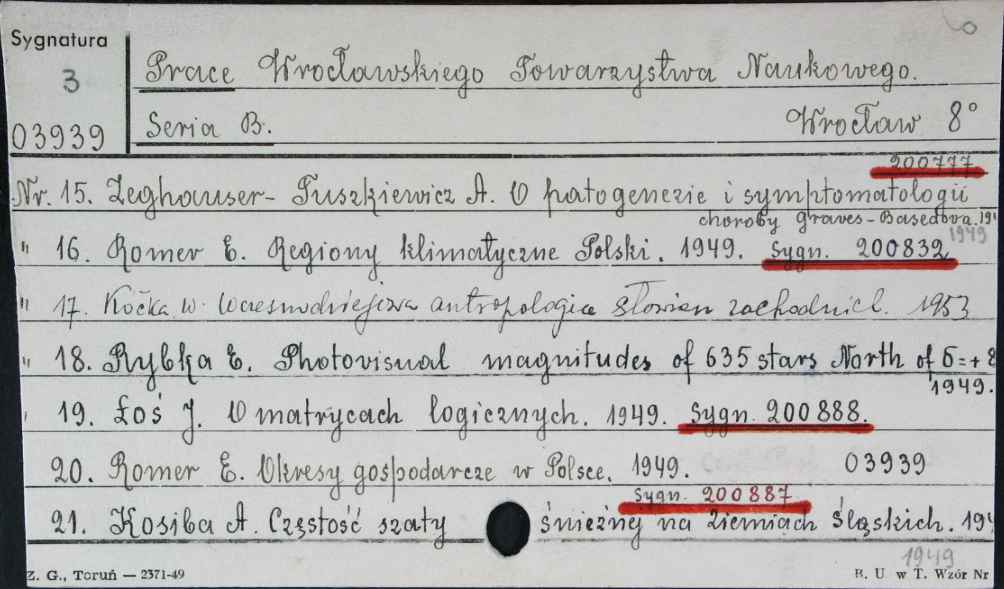 Sygnatura
3
03939
Prace Wrocławskiego Towarzystwa Naukowego.
Seria B. Wrocław 8°
200777
Nr. 15. Zeghauser-Tuszkiewicz A. O patogenezie i symptomatologii
choroby graves-Basedova. 194
1949
" 16. Romer E. Regiony klimatyczne Polski. 1949. Sygn. 200832
" 17. Kočka W. Wczesnodziejowa antropologia Słowian zachodnich. 1953
" 18. Rybka E. Photovisual magnitudes of 635 stars North of δ=+8
1949.
19. Łoś J. O matrycach logicznych. 1949. Sygn. 200888.
20. Romer E. Okresy gospodarcze w Polsce. 1949. 03939
Sygn. 200887
21. Kosiba A. Częstość szaty śnieżnej na Ziemiach Śląskich. 194
1949
Z. G., Toruń — 2371-49 B. U w T. Wzór Nr